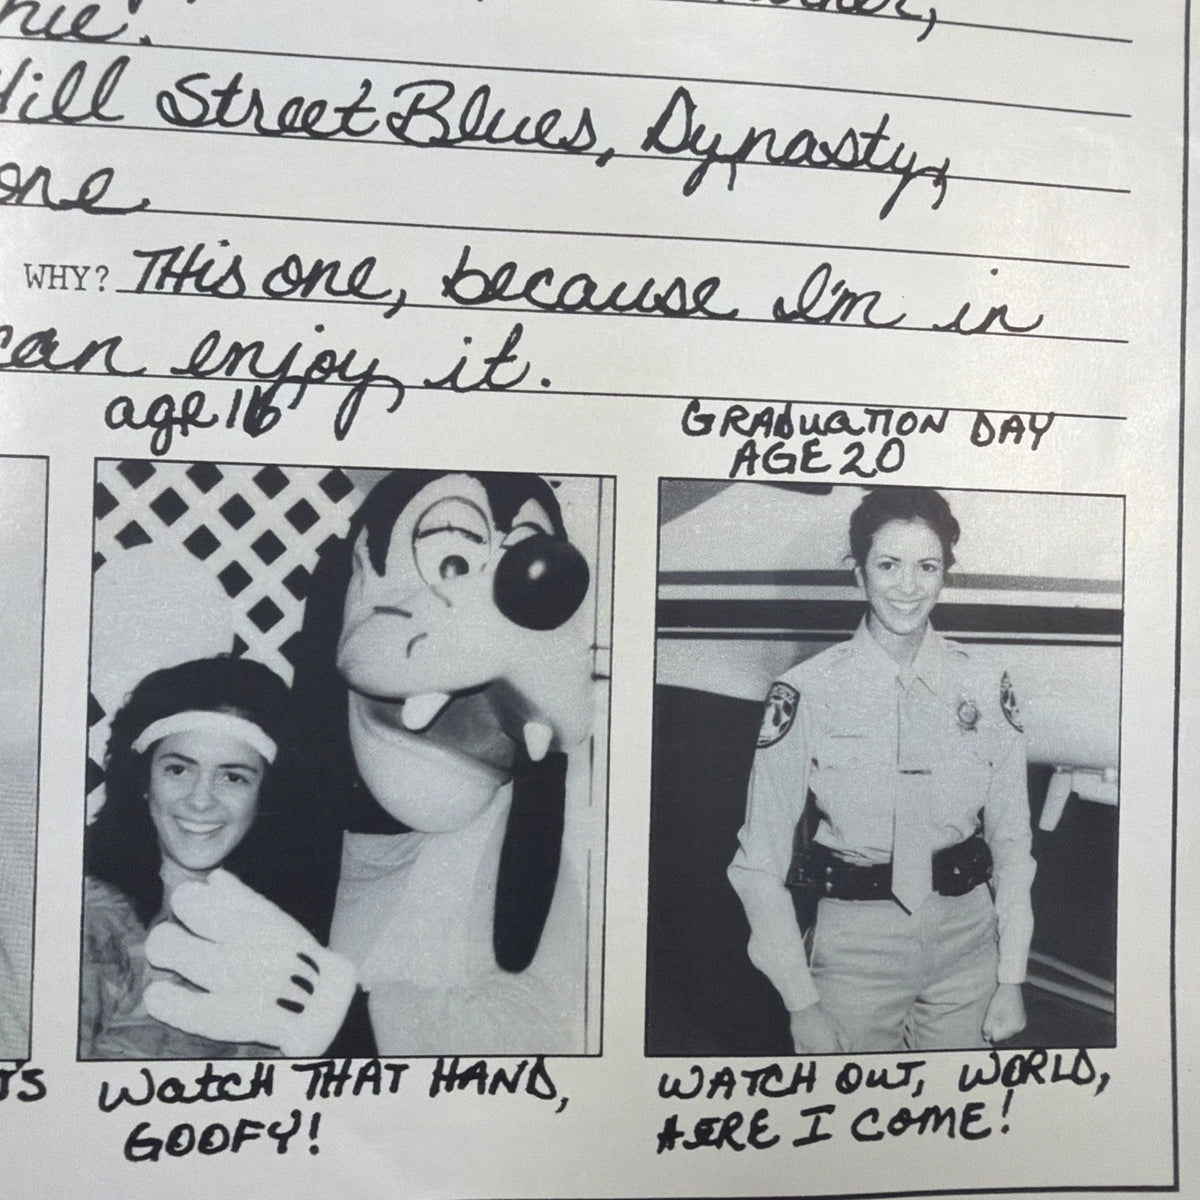 Hill Street Blues, Dynasty,
one
WHY? THis one, because I'm in
can enjoy it.
age 16
GRADUATION DAY
AGE 20
WatcH THAT HAND,
GOOFY!
WATCH OUT, WORLD,
HERE I COME!